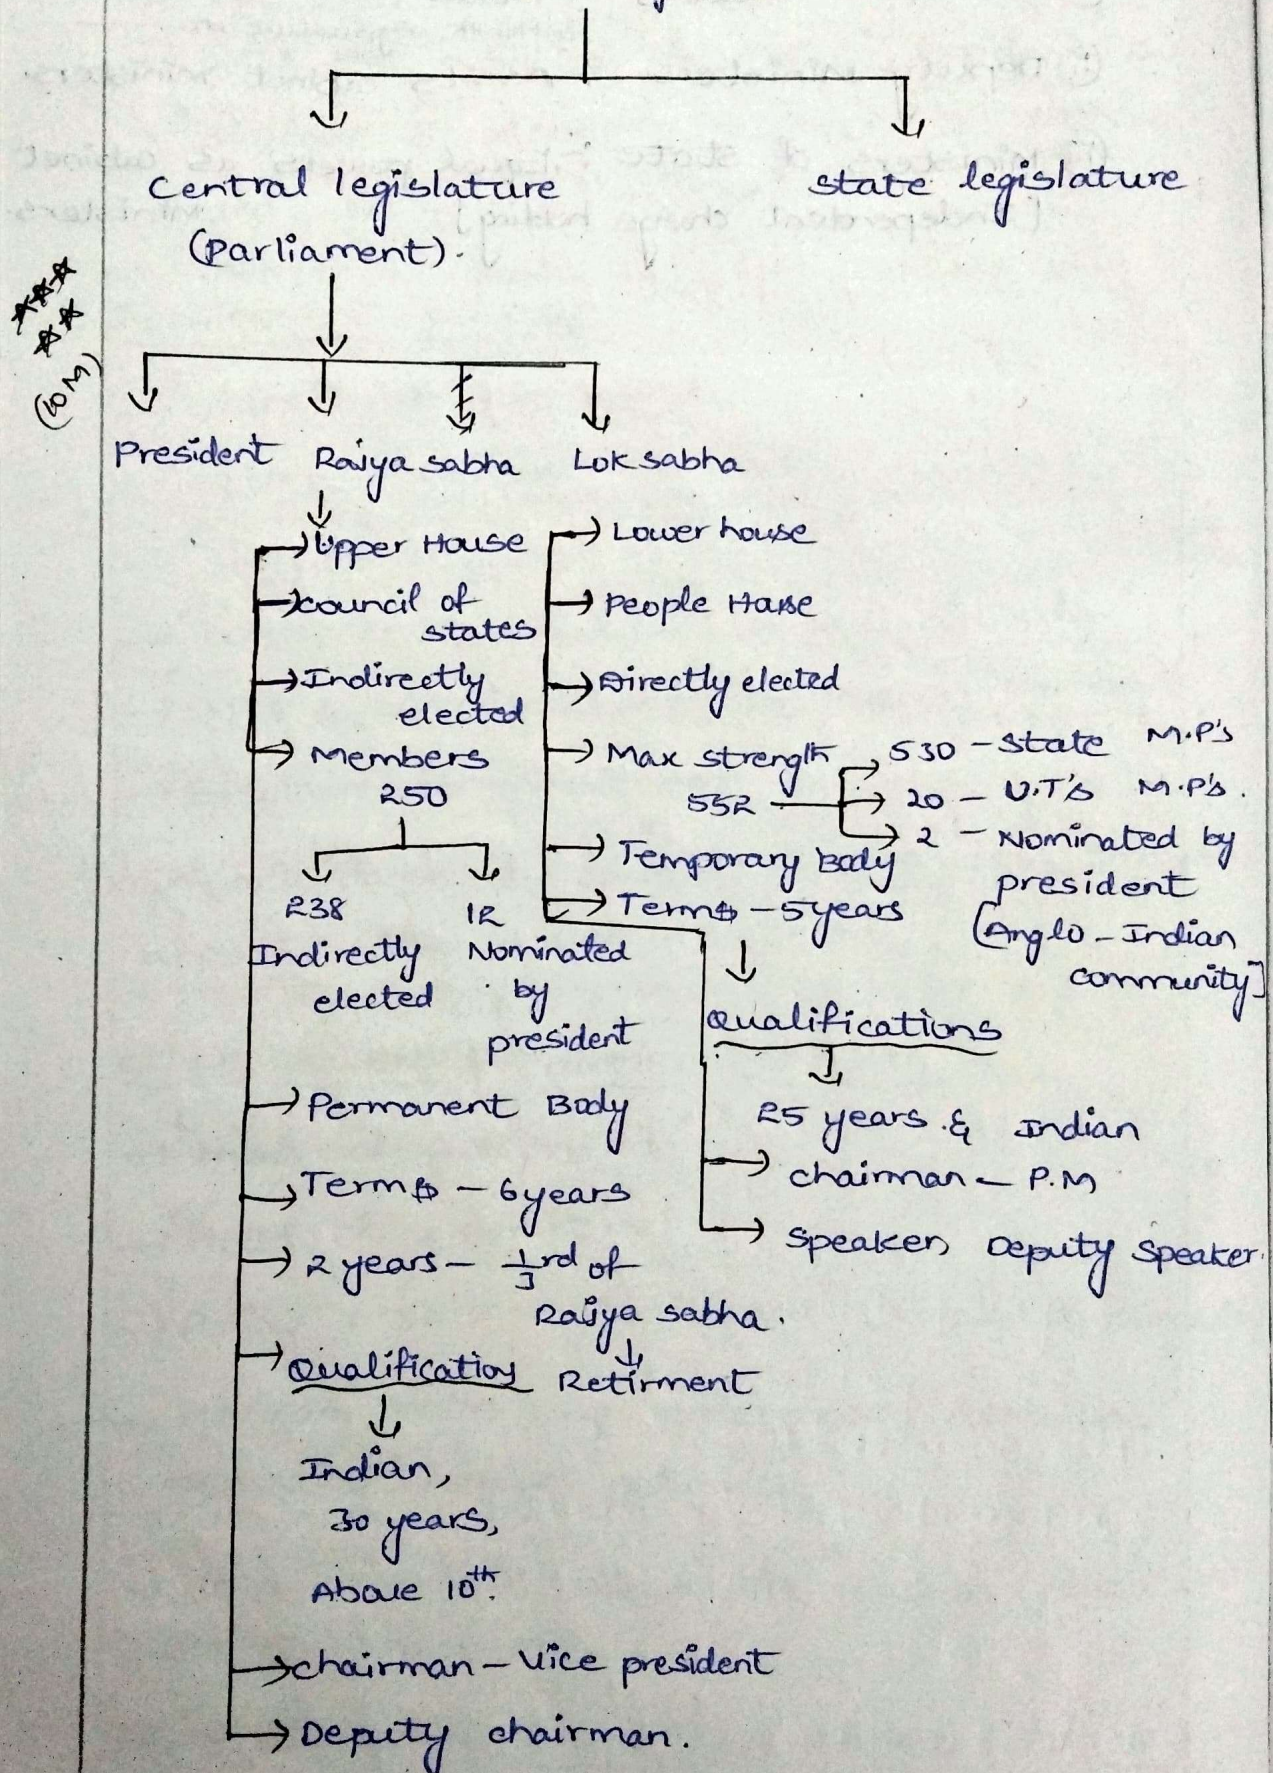 Central legislature
(Parliament).
state legislature
(10M)
President Rajya sabha Lok sabha
Upper House
council of
states
Indirectly
elected
Members
250
238
Indirectly
elected
12
Nominated
by
president
Permanent Body
Terms - 6 years
2 years - 1/3 rd of
Rajya sabha.
Retirment
Qualification
Indian,
30 years,
Above 10th.
chairman - Vice president
Deputy chairman.
Lower house
People House
Directly elected
Max strength
552
530 - State M.P's
20 - U.T's M.P's.
2 - Nominated by
president
(Anglo - Indian
community]
Temporary Body
Terms - 5 years
Qualifications
25 years & Indian
chairman - P.M
Speaker, Deputy Speaker.